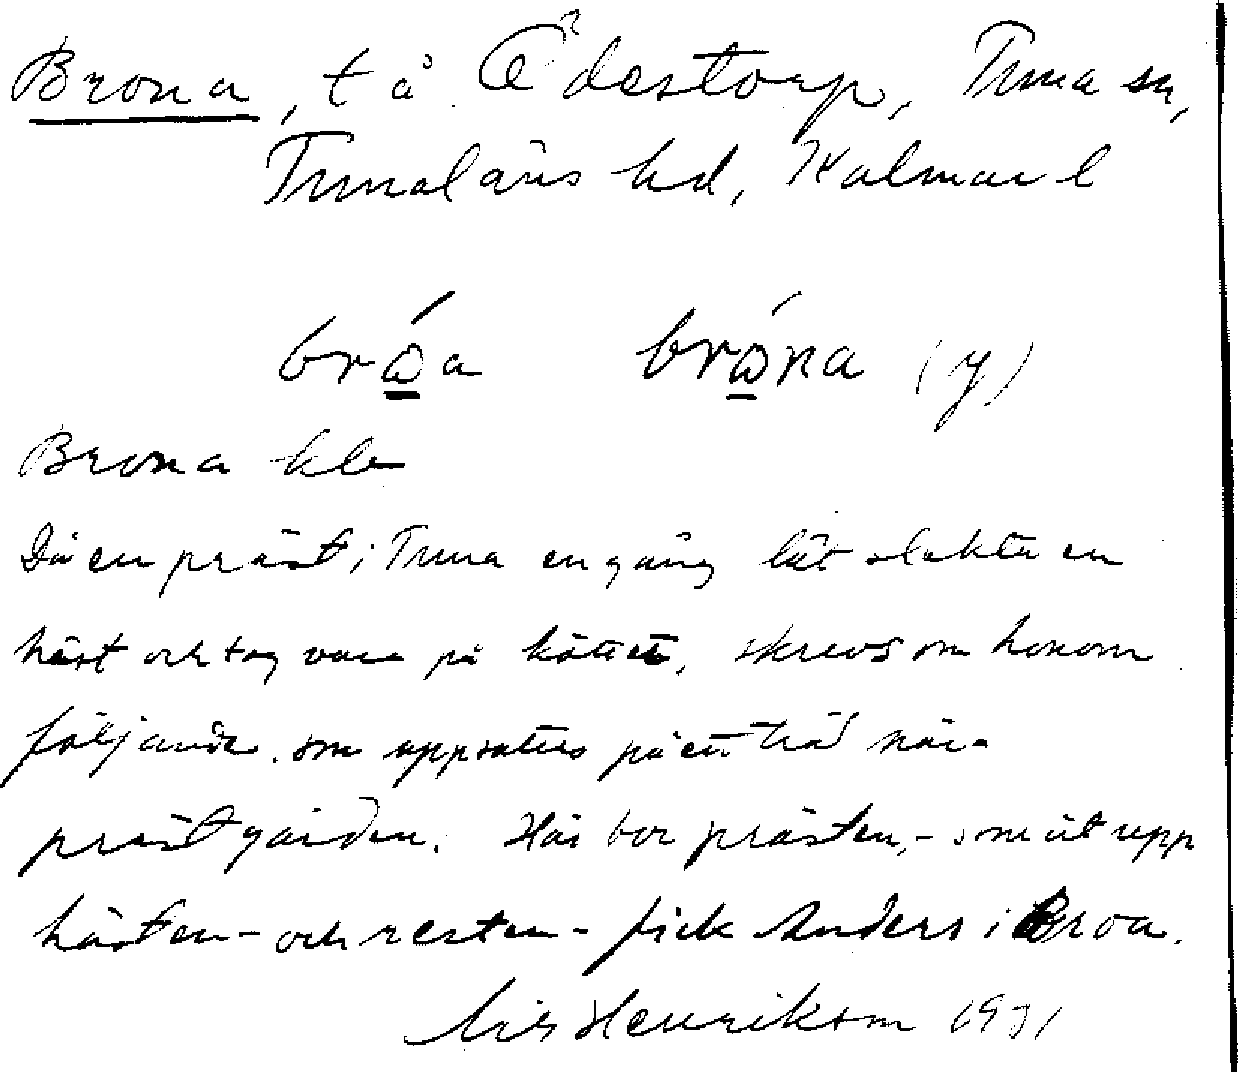 Brona, t å Ådestorp, Tuna sn,
Tunaläns hd, Kalmar l
brώa brώna (y)
Brona kle
Då en präst i Tuna en gång lät slakta en
häst och tog vara på köttet, skrevs om honom
följande, som uppsattes på ett träd nära
prästgården. Här bor prästen, - som åt upp
hästen - och resten - fick Anders i Broa.
Henrikson 1931